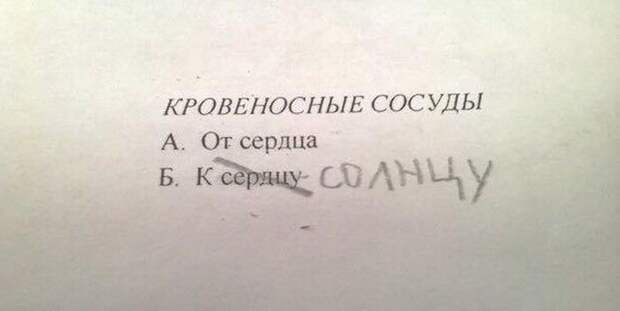 КРОВЕНОСНЫЕ СОСУДЫ
А. От сердца
Б. К сердцу СОЛНЦУ